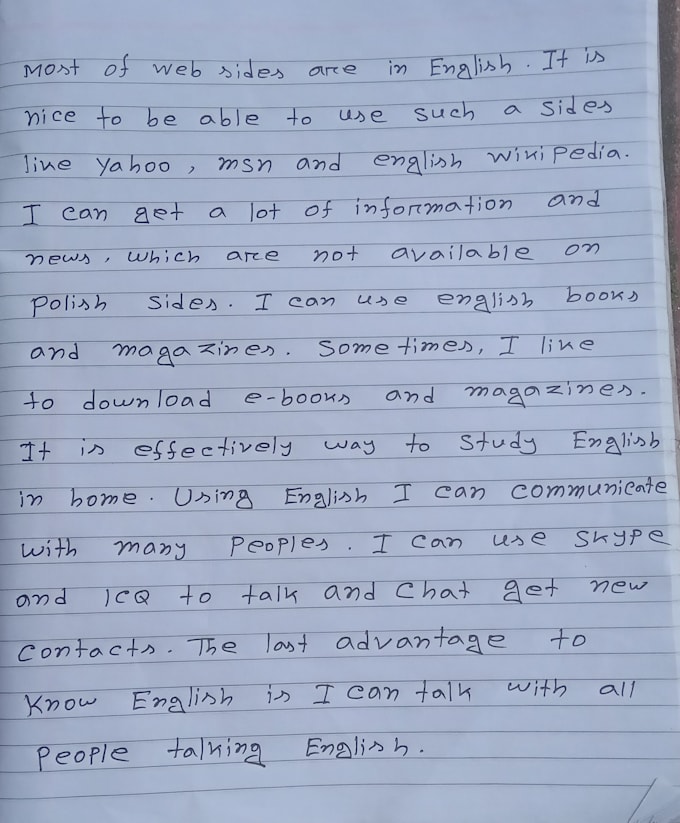 Most of web sides are in English. It is
nice to be able to use such a sides
like Yahoo, msn and english wikipedia.
I can get a lot of information and
news, which are not available on
polish sides. I can use english books
and magazines. Sometimes, I like
to download e-books and magazines.
It is effectively way to study English
in home. Using English I can communicate
with many peoples. I can use skype
and ICQ to talk and chat get new
contacts. The last advantage to
know English is I can talk with all
people talking English.